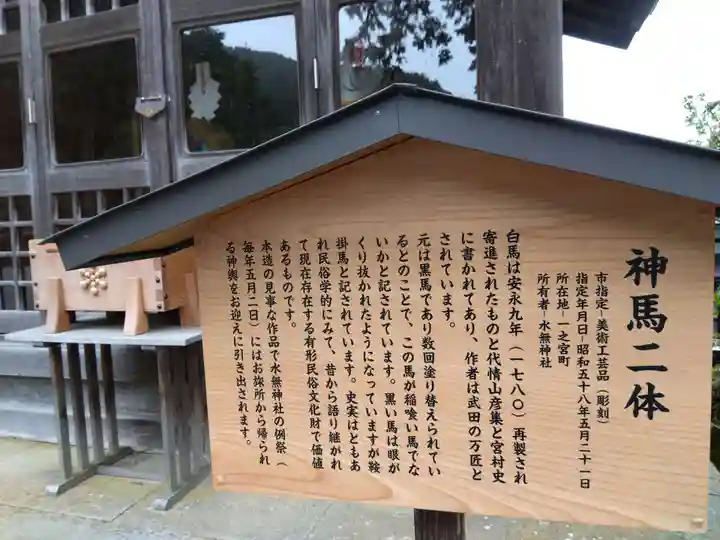 神馬二体
市指定－美術工芸品（彫刻）
指定年月日－昭和五十八年五月二十一日
所在地－一之宮町
所有者－水無神社
白馬は安永九年（一七八〇）再製され
寄進されたものと代情山彦集と宮村史
に書かれてあり、作者は武田の万匠と
されています。
元は黒馬であり数回塗り替えられてい
るとのことで、この馬が稲喰い馬でな
いかと記されています。黒い馬は眼が
くり抜かれたようになっていますが鞍
掛馬と記されています。史実はともあ
れ民俗学的にみて、昔から語り継がれ
て現在存在する有形民俗文化財で価値
あるものです。
本造の見事な作品で水無神社の例祭（
毎年五月二日）にはお旅所から帰られ
る神輿をお迎えに引き出されます。